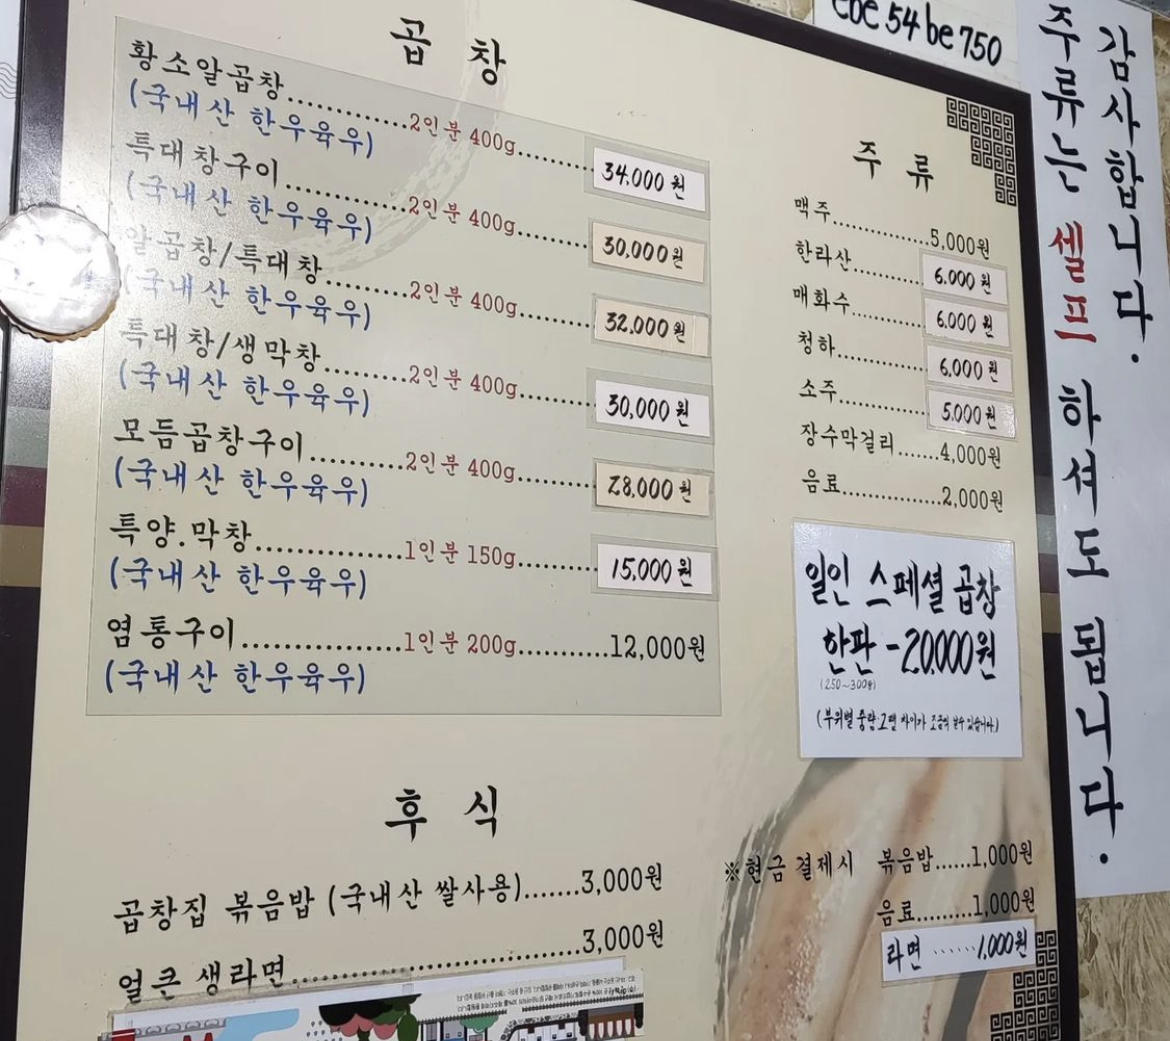 곱 창
황소알곱창..........2인분 400g..........34,000원
(국내산 한우육우)
특대창구이..........2인분 400g..........30,000원
(국내산 한우육우)
알곱창/특대창..........2인분 400g..........32,000원
(국내산 한우육우)
특대창/생막창..........2인분 400g..........30,000원
(국내산 한우육우)
모듬곱창구이..........2인분 400g..........28,000원
(국내산 한우육우)
특양.막창..........1인분 150g..........15,000원
(국내산 한우육우)
염통구이..........1인분 200g..........12,000원
(국내산 한우육우)
후 식
곱창집 볶음밥 (국내산 쌀사용).......3,000원
얼큰 생라면..........3,000원
주 류
맥주..........5,000원
한라산..........6,000원
매화수..........6,000원
청하..........6,000원
소주..........5,000원
장수막걸리.......4,000원
음료..........2,000원
일인 스페셜 곱창
한판 - 20,000원
(250~300g)
※현금 결제시 볶음밥......1,000원
음료.........1,000원
라면 ······1,000원
54 be 750
감사합니다.
주류는 셀프 하셔도 됩니다.